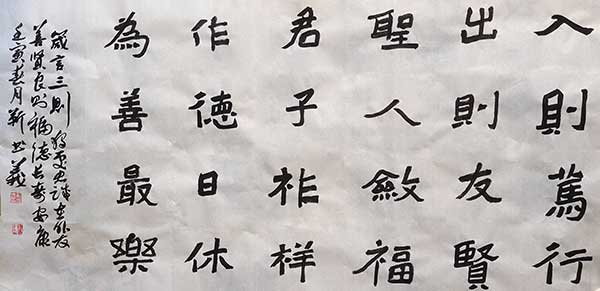 入則篤行
出則友賢
聖人斂福
君子祥
作德日休
為善最樂
箴言三則友
善賢良則福德長壽安康
壬寅春月